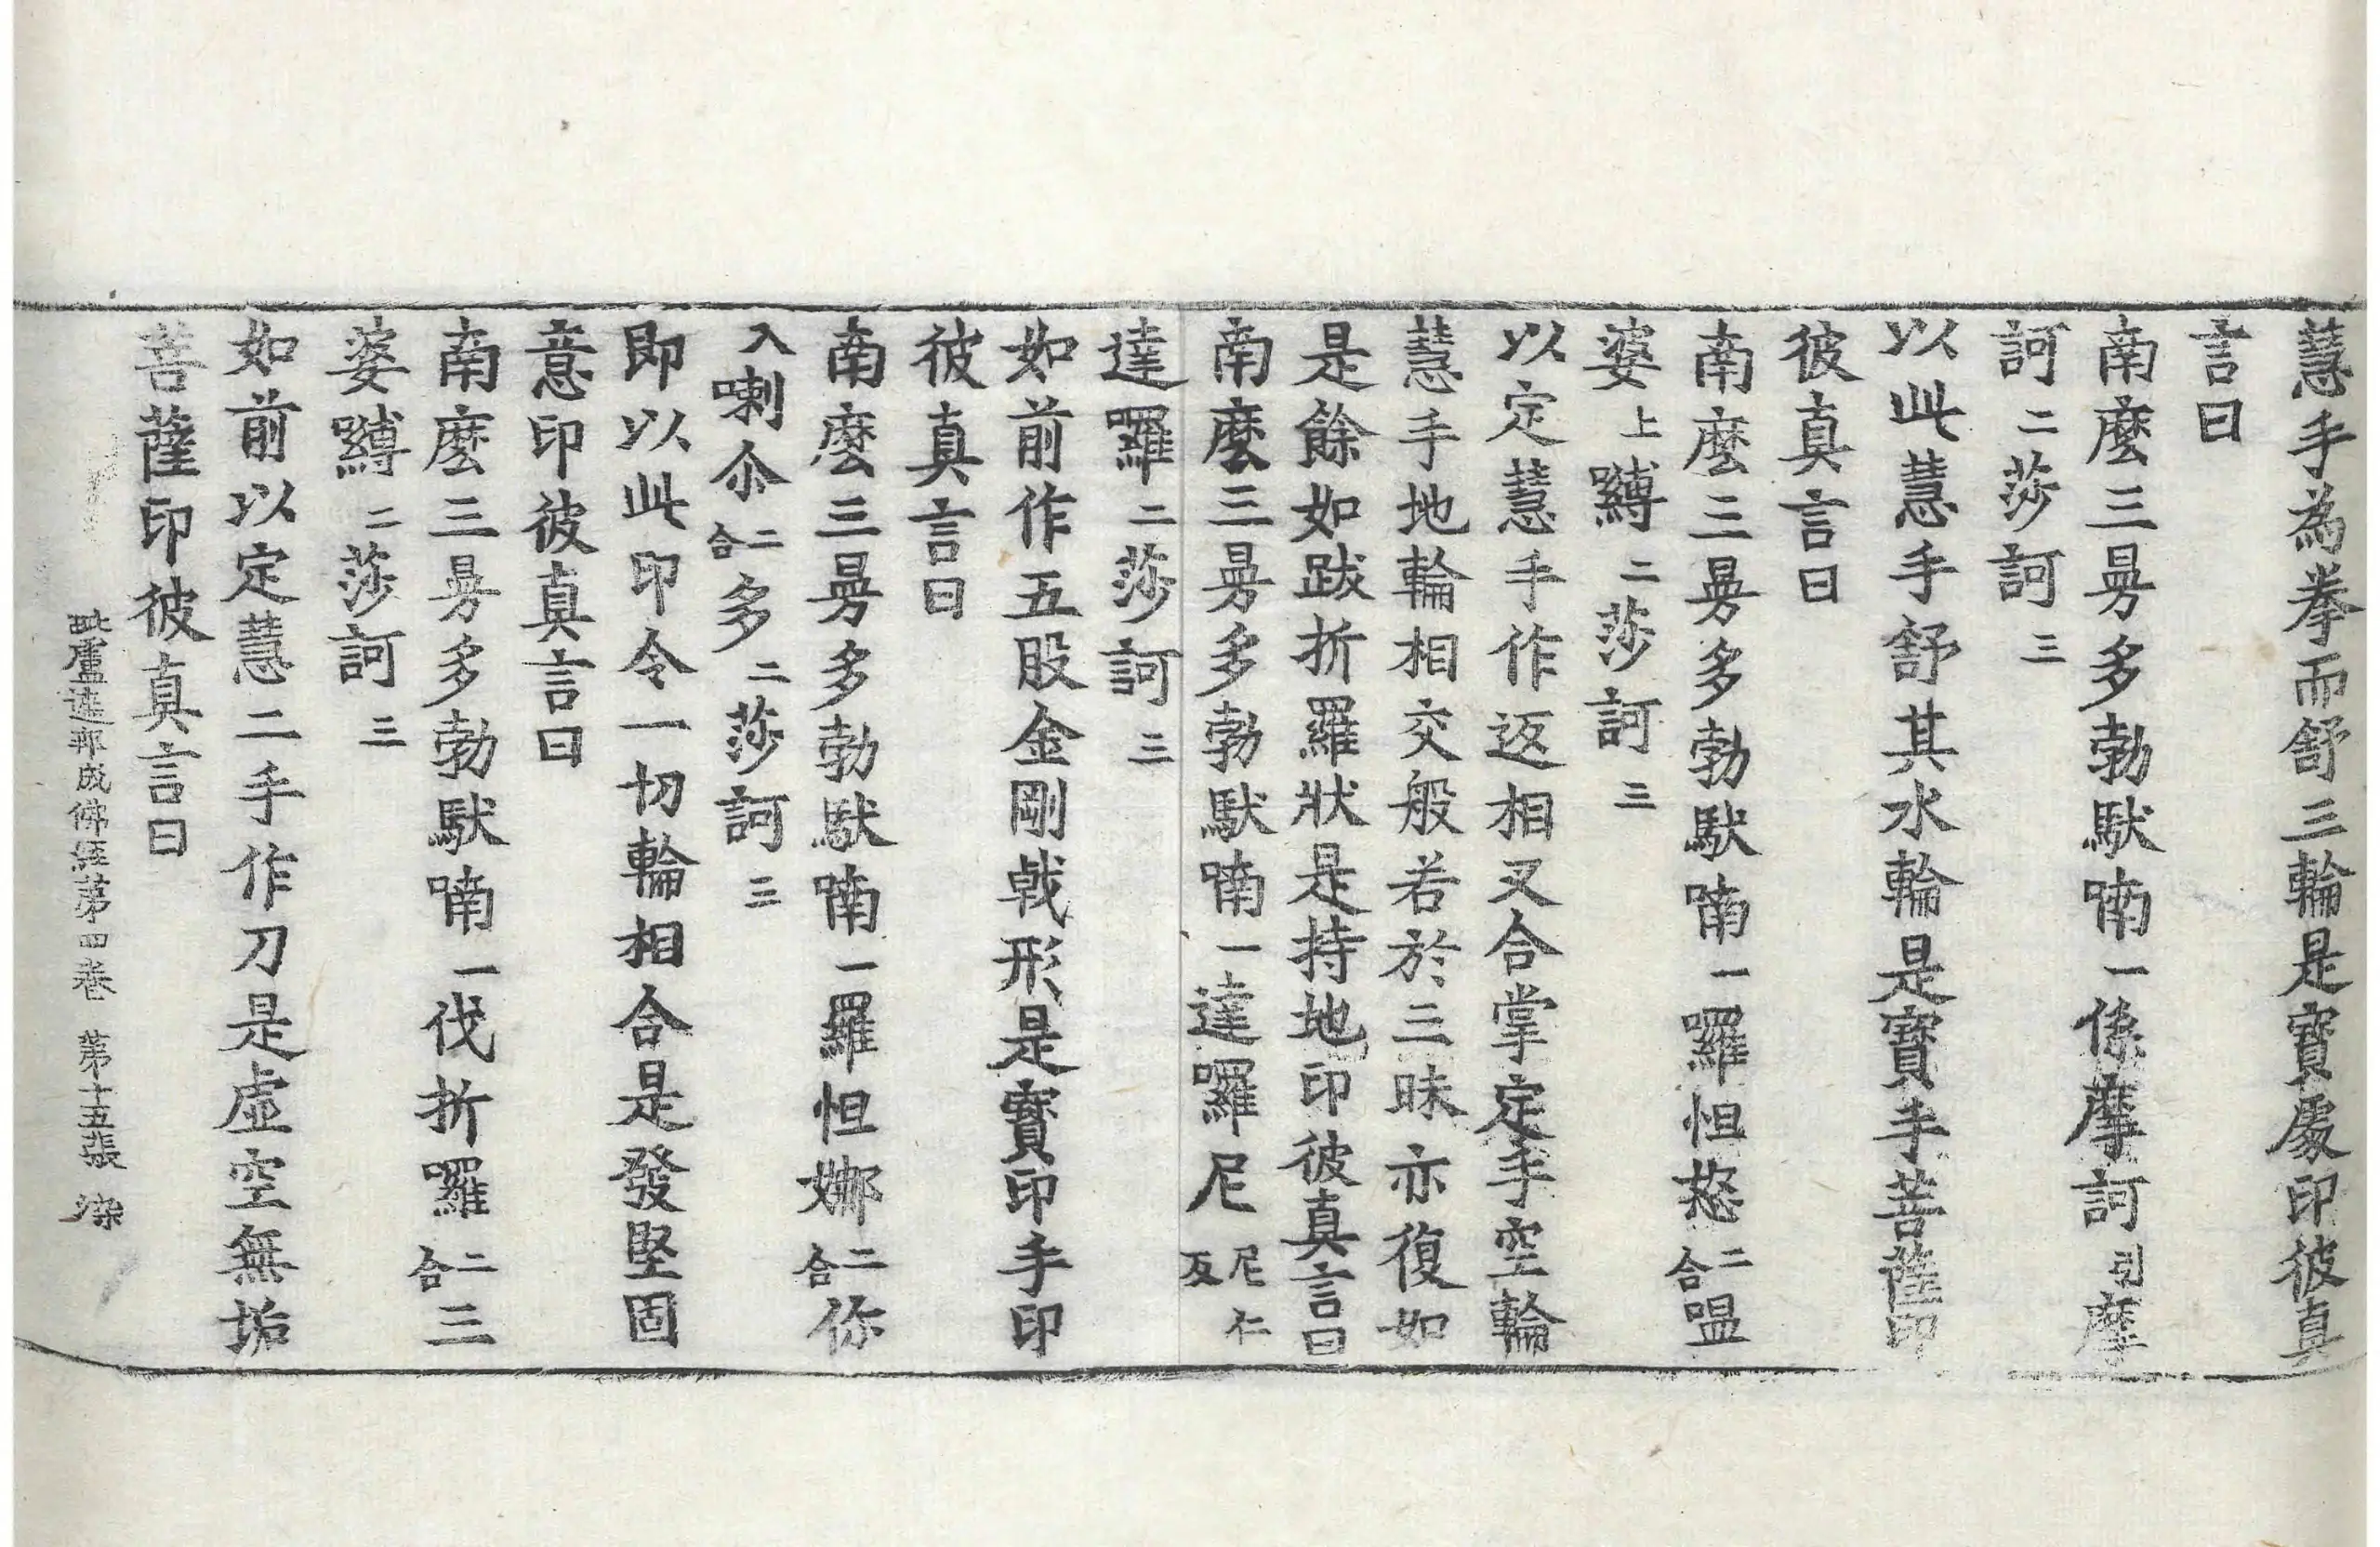 慧手為拳而舒三輪是寶處印彼真
言曰
南麼三曼多勃馱喃一係摩訶引摩
訶二莎訶三
以此慧手舒其水輪是寶手菩薩印
彼真言曰
南麼三曼多勃馱喃一囉怛怒二合嗢
婆上嚩二莎訶三
以定慧手作返相叉合掌定手空輪
慧手地輪相交般若於三昧亦復如
是餘如跋折羅狀是持地印彼真言曰
南麼三曼多勃馱喃一達囉尼尼仁反
達囉二莎訶三
如前作五股金剛戟形是寶印手印
彼真言曰
南麼三曼多勃馱喃一羅怛娜二合你
入喇尒二合多二莎訶三
即以此印令一切輪相合是發堅固
意印彼真言曰
南麼三曼多勃馱喃一伐折囉二合三
婆嚩二莎訶三
如前以定慧二手作刀是虛空無垢
菩薩印彼真言曰
毗盧遮那成佛經第四卷 第十五張 染